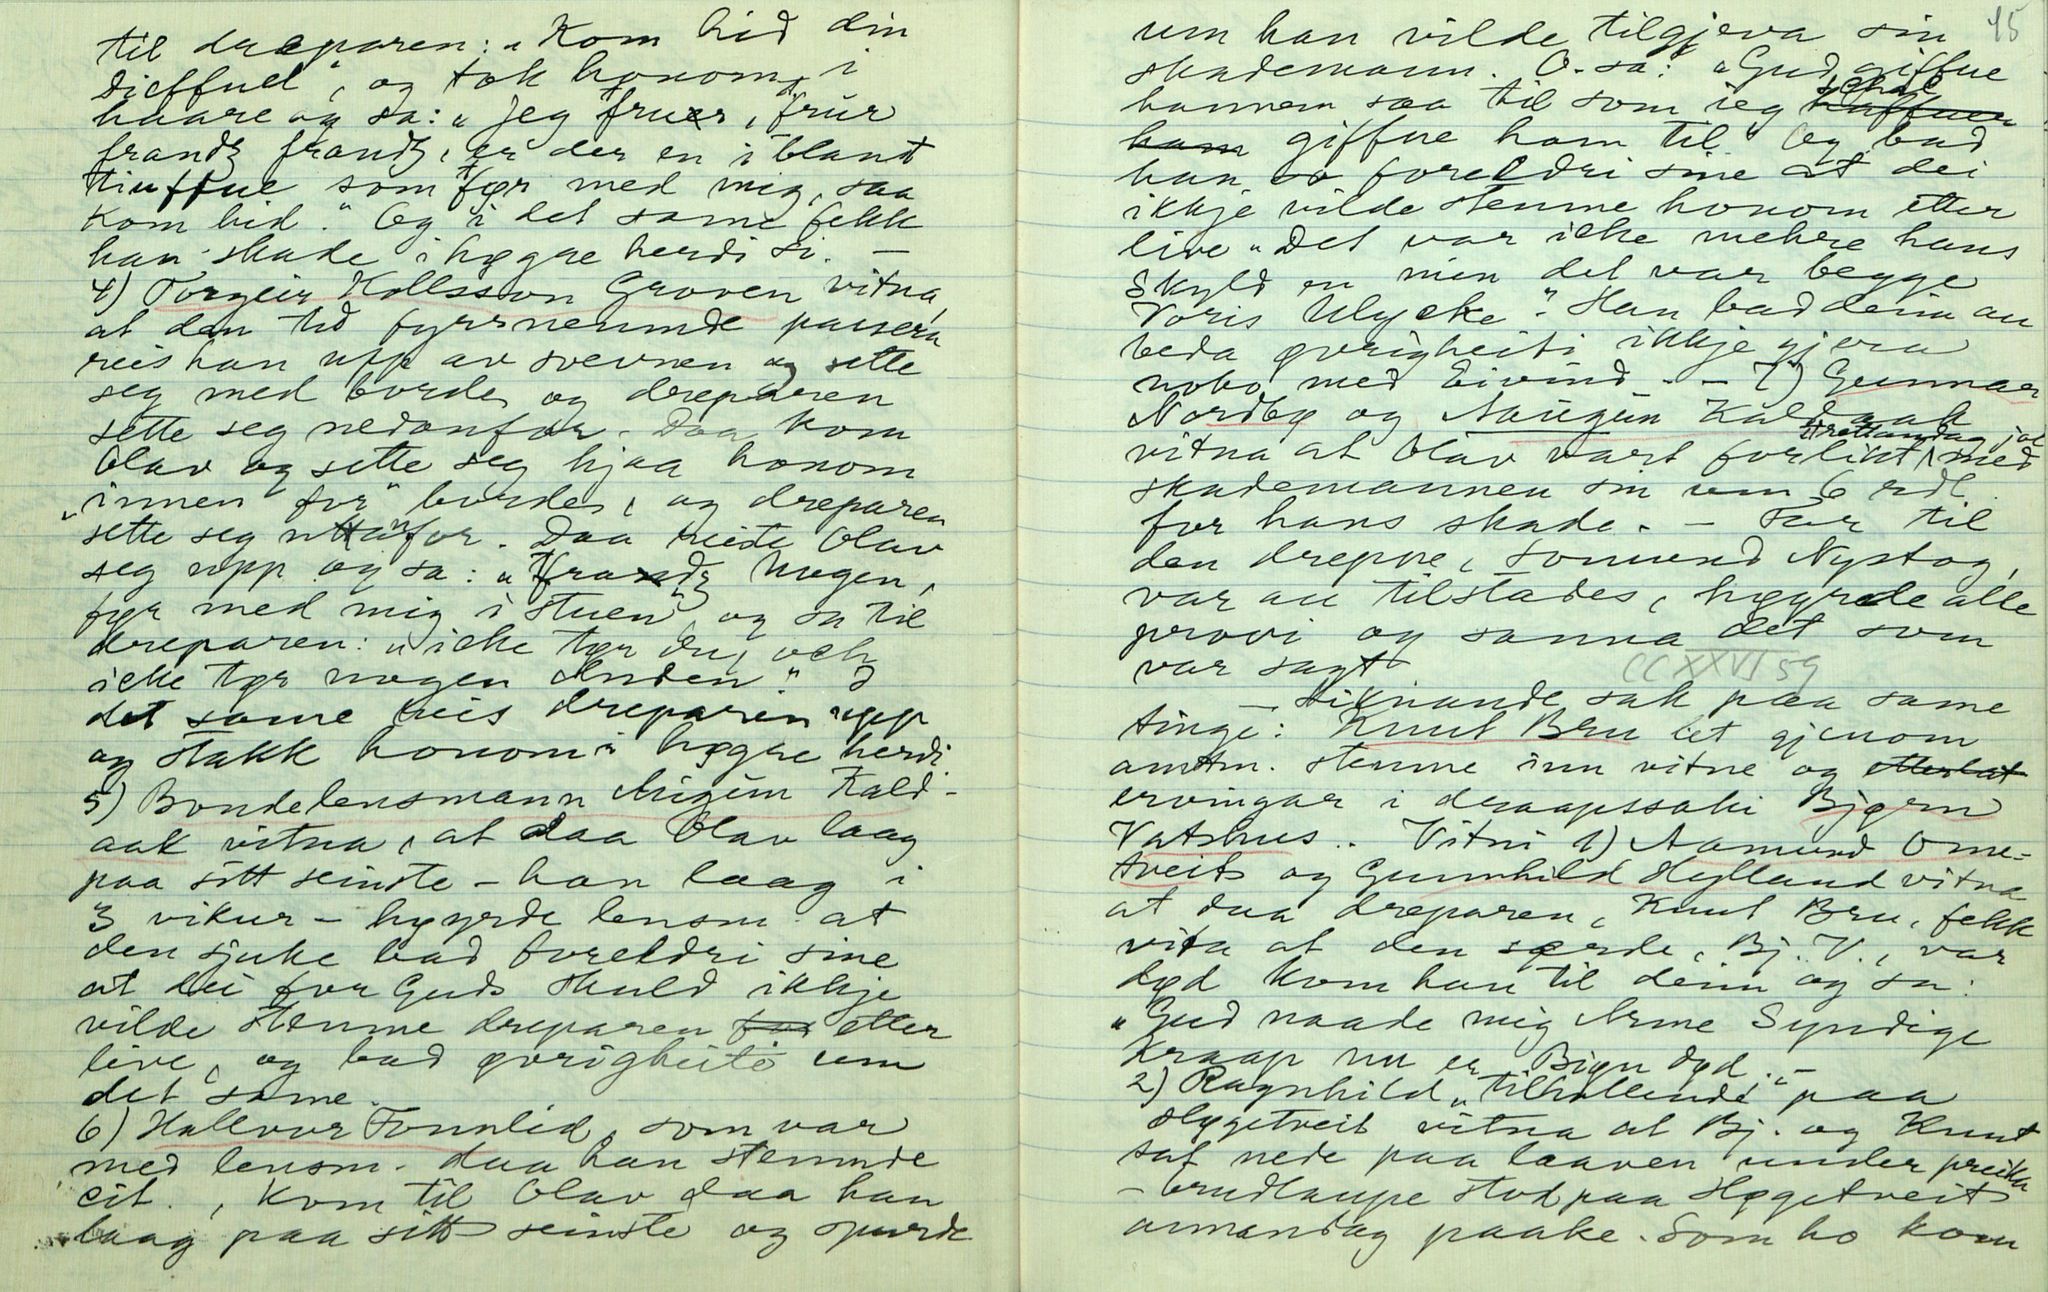 til dreparen: „Kom hid din
Dieffuel", og tok honom i
haare og sa: „Jeg truer, trur
frandz frandz, er der en i blant
tiuffue som tør med mig, saa
kom hid." Og i det same fekk
han skade i høgre herdi si. —
4) Torgeir Kollsson Groven vitna,
at den tid fyrrnemnde passera
reis han upp av svevnen og sette
seg med borde, og dreparen
sette seg nedanfor. Daa kom
Olav og sette seg hjaa honom
„innen for" borde, og dreparen
sette seg uttanfor. Daa reiste Olav
seg upp og sa: „Trandz Nogen,
tør med mig i stuen", og sa til
dreparen: „icke tør du, och
icke tør nogen Anden." I
det same reis dreparen upp
og stakk honom i høgre herdi
5) Bondelensmann Augun Kald-
aak vitna, at daa Olav laag
paa sitt seinste – han laag i
3 vikur – høyrde lensm. at
den sjuke bad foreldri sine
at dei for Guds skuld ikkje
vilde stemne dreparen for etter
live, og bad øvrigheiti um
det same.
6) Hallvor Fonnlid, som var
med lensm. daa han stemnde
cit., kom til Olav daa han
laag paa sitt seinste og spurde
45
um han vilde tilgjeva sin
skademann. O. sa: „Gud giffue
hannem saa til som ieg haffuer schal
ham giffue ham til" Og bad
han so foreldri sine at dei
ikkje vilde stemne honom etter
live „Det var icke mehre hans
Skyld en min det var begge
Voris Ulycke". Han bad deim au
beda øvrigheiti ikkje gjera
noko med Eivind. – 7) Gunnar
Nordbø og Augun Kaldaak
vitna at Olav vart forlikt trettandag jol med
skademannen sin um 6 rdl.
for hans skade. – Far til
den drepne, Sonmund Nystog,
var au tilstades, høyrde alle
provi og sanna det som
var sagt
CCXXVI 59
– Liknande sak paa same
tinge: Knut Bru let gjenom
amtm. stemne inn vitne og etterlat
ervingar i draapssaki Bjørn
Vatshus.. Vitni 1) Aamund Ome-
tveit og Gunnhild Hylland vitna
at daa dreparen, Knut Bru, fekk
vita at den særde, Bj. V., var
død kom han til deim og sa:
„Gud naade mig Arme Syndige
Kraap nu er Biørn død." –
2) Ragnhild „tilhollende" paa
Høgetveit vitna at Bj. og Knut
sat nede paa laaven under preika
– brudlaupe stod paa Høgetveit
annandag paaske. Som ho kom